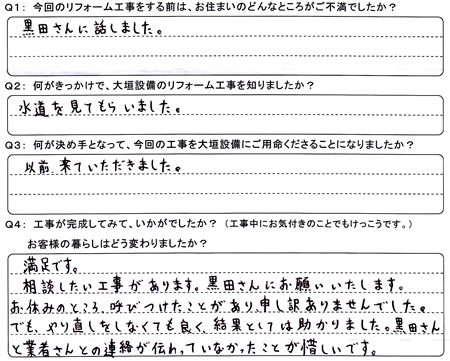 Q1： 今回のリフォーム工事をする前は、お住まいのどんなところがご不満でしたか？
黒田さんに話しました。
Q2： 何がきっかけで、大垣設備のリフォーム工事を知りましたか？
水道を見てもらいました。
Q3： 何が決め手となって、今回の工事を大垣設備にご用命くださることになりましたか？
以前、来ていただきました。
Q4： 工事が完成してみて、いかがでしたか？（工事中にお気付きのことでもけっこうです。）
お客様の暮らしはどう変わりましたか？
満足です。
相談したい工事があります。黒田さんにお願いいたします。
お休みのところ、呼びつけたことがあり、申し訳ありませんでした。
でも、やり直しをしなくても良く、結果としては助かりました。黒田さん
と業者さんとの連絡が伝わっていなかったことが惜しいです。